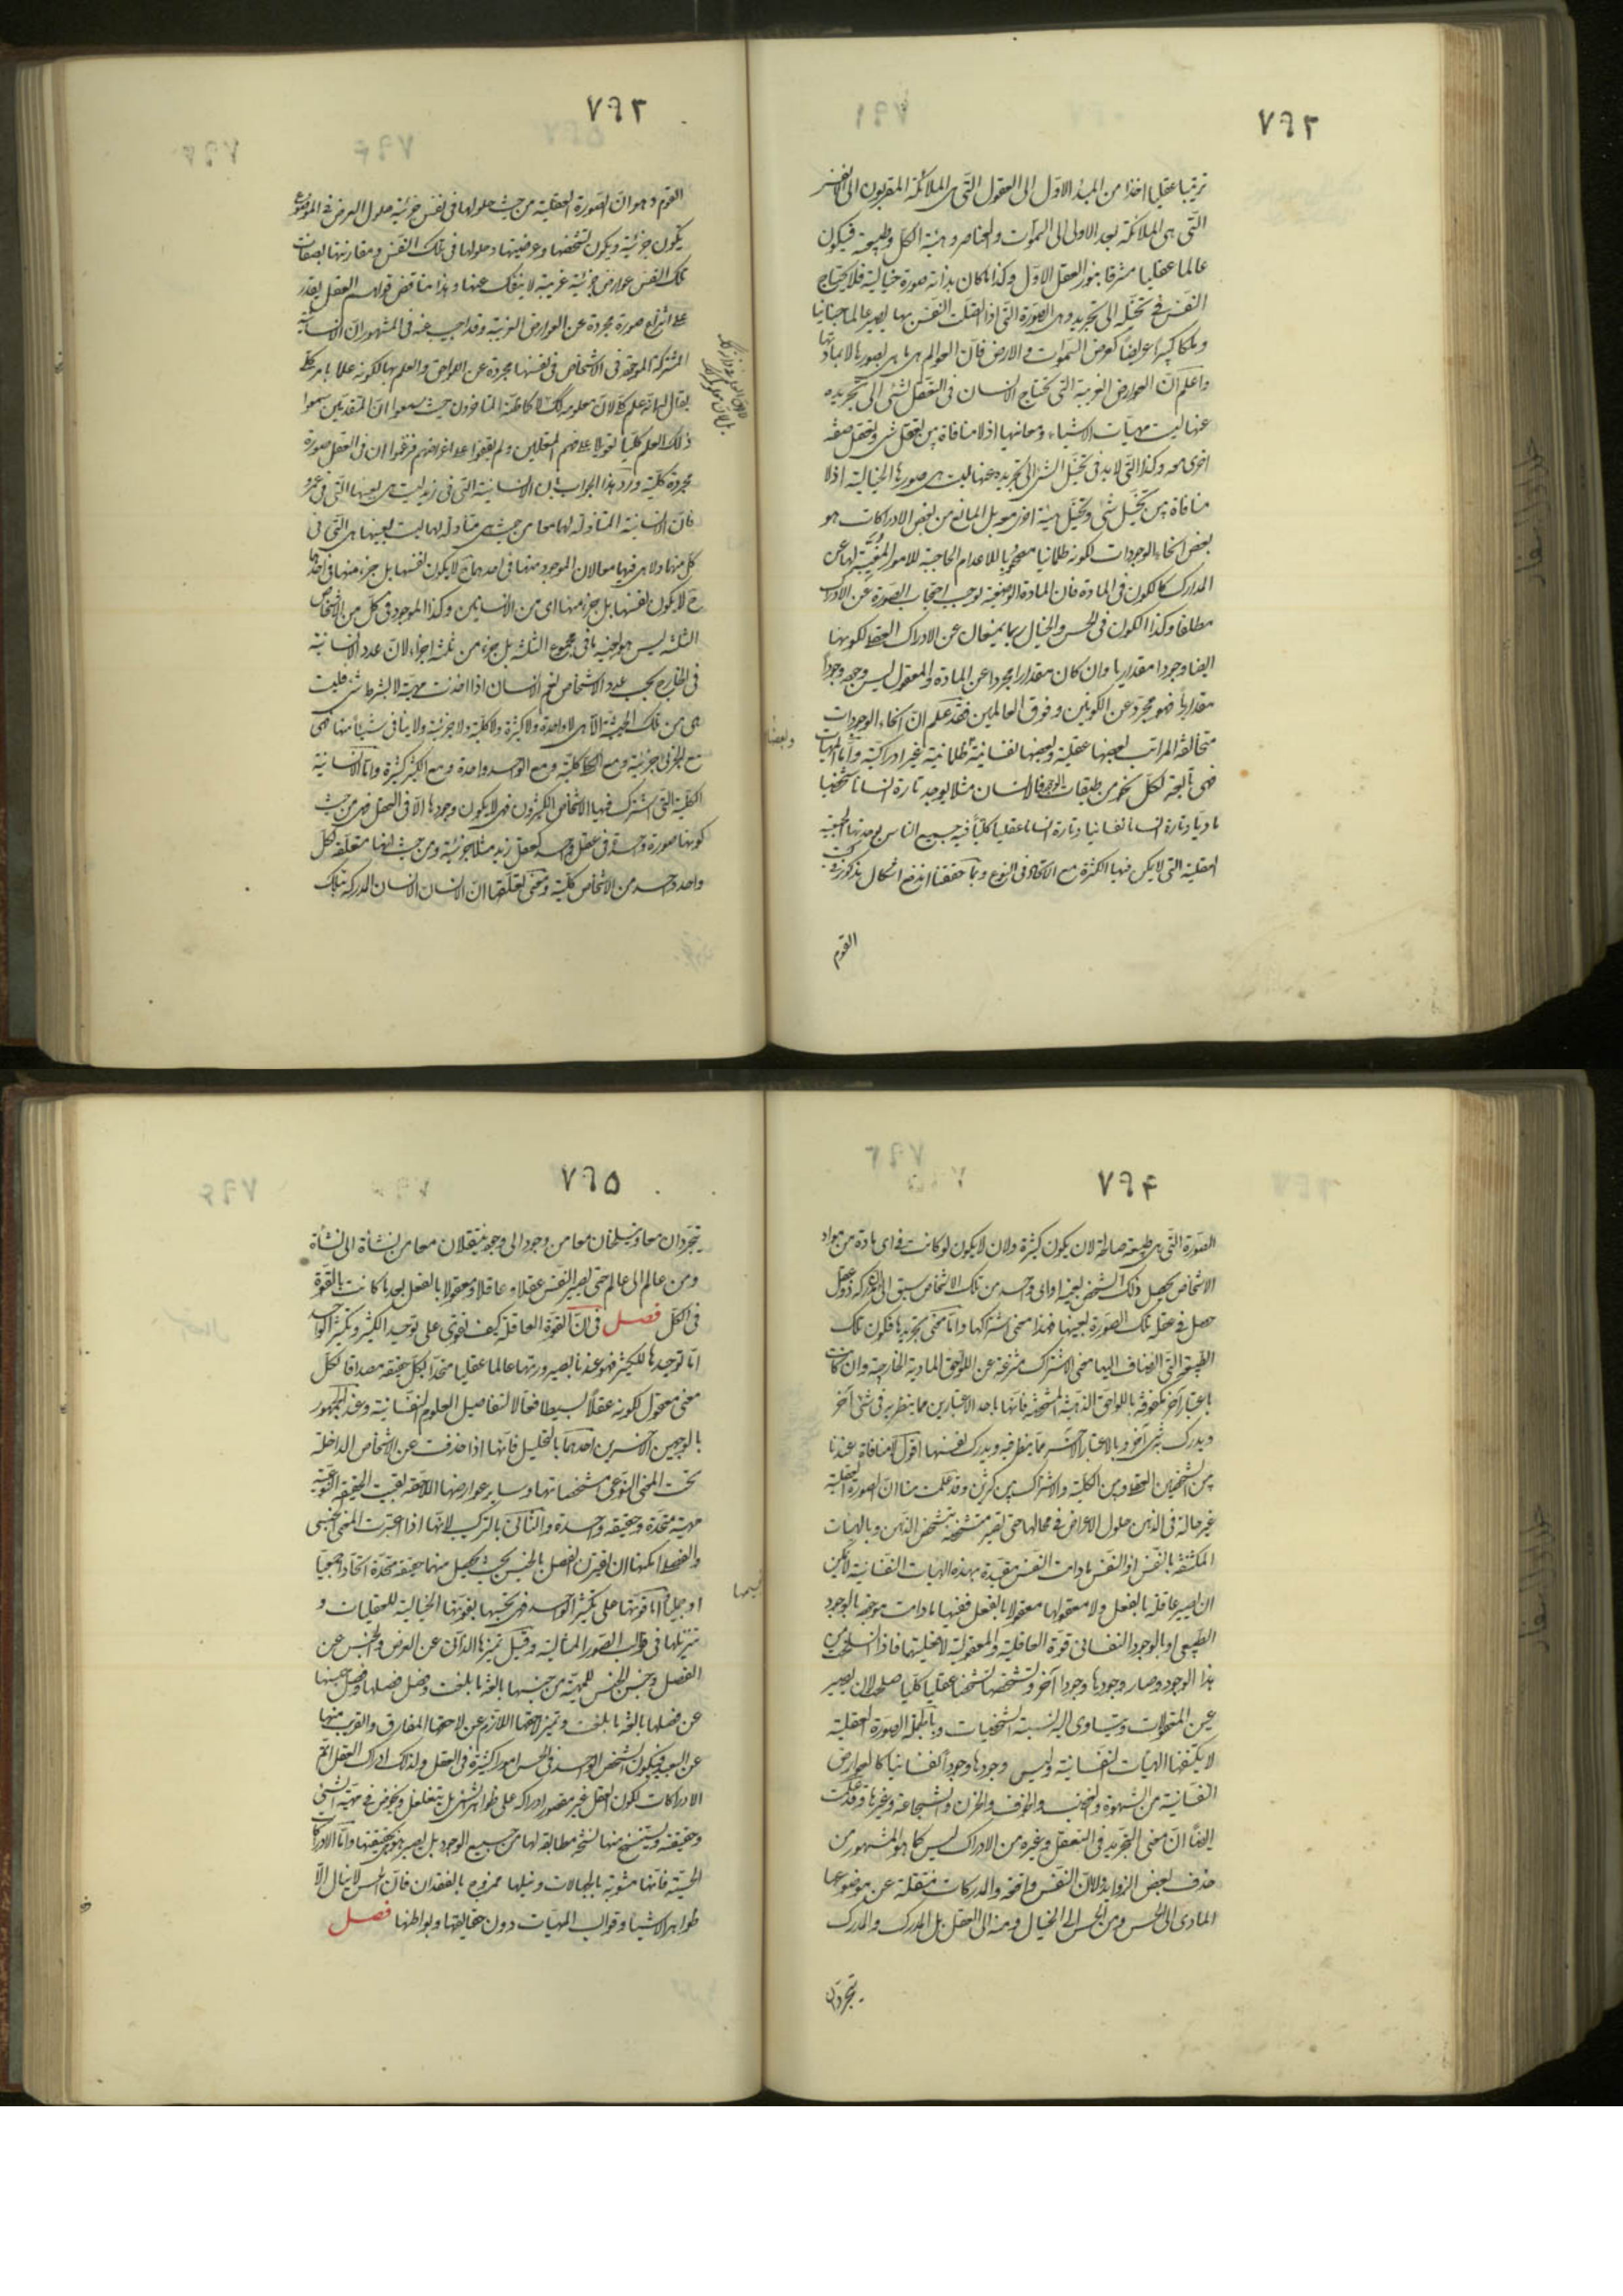 ٧٩٢
ترتيبا عقليا اخذا من المبدء الاوّل الى العقول التّى هى الملائكة المقربون الى الانفس
التّى هى الملائكة بعد الاولى الى السموات والعناصر وهيئة الكلّ وطبيعته فيكون
عالما عقليا مشرقا بنور العقل الاوّل وكذا ما كان بذاته صورة خيالية فلا يحتاج
النفس فى تخيّله الى تجريد وهى الصورة التّى اذا اتصلت النفس بها يصير عالما جنانيا
وملكا كبيرا عريضا كعرض السّموات والارض فانّ العوالم هى ما هى بصورها لا بمادّتها
واعلم انّ العوارض الغريبة التّى يحتاج الانسان فى التعقل لشئ الى تجريده
عنها ليست مهيّات الاشياء ومعانيها اذ لا منافاة بين تعقل شئ وتعقل صفة
اخرى معه وكذا التّى لا بد فى تخيّل الشئ الى تجريده عنها ليست هى صورها الخيالية اذ لا
منافاة بين تخيّل شئ وتخيّل هيئة اخرى معه بل المانع من بعض الادراكات هو
بعض انحاء الوجودات لكونه ظلمانيا مصحوبا للاعدام الحاجبة للامور المغيّبة لها عن
المدارك كالكون فى المادة فان المادة الوضعية توجب احتجاب الصورة عن الادراك
مطلقا وكذا الكون فى الحس والخيال ربما يمنعان عن الادراك العقلى لكونها
ايضا وجودا مقداريا وان كان مقدارا مجردا عن المادة والمعقول ليس وجوده وجودا
مقداريا فهو مجرّد عن الكونين وفوق العالمين فقد علم انّ انحاء الوجودات
متخالفة المراتب بعضها عقلية وبعضها نفسانية ظلمانية غير ادراكية وامّا المهيّات
فهى تابعة لكلّ نحو من طبقات الوجود فالانسان مثلا يوجد تارة انسانا شخصيا
ماديّا وتارة انسانا نفسانيا وتارة انسانا عقليا كليّا فيه جميع الناس بوحدتها الجمعية
العقلية التى لا يمكن فيها الكثرة مع الاتحاد فى النوع وبما حققنا اندفع اشكال مذكور فى كتب
القوم
وبعضها
٧٩٣
القوم وهو انّ الصورة العقلية من حيث حلولها فى نفس جزئية حلول العرض فى الموضوع
يكون جزئية ويكون تشخصها وعرضيتها وحلولها فى تلك النفس ومقارنتها بصفات
تلك النفس عوارض جزئية غريبة لا ينفك عنها وهذا يناقض قولهم العقل يقدر
على انتزاع صورة مجردة عن العوارض الغريبة وقد اجيب عنه فى المشهور انّ الانسانية
المشتركة الموجودة فى الاشخاص فى نفسها مجردة عن اللواحق والعلم بها لكونه علما بامر كلى
يقال لها انه علم كلى لانّ معلومه كلى لا كما ظنّه المتاخرون حيث سمعوا انّ المتقدمين سموا
ذلك العلم كليّا تعويلا على فهم المتعلمين ولم يقفوا على اغراضهم فزعموا ان فى العقل صورة
مجردة كلية وردّ هذا الجواب بان الانسانية التّى فى زيد ليست هى بعينها التّى فى عمرو
فانّ الانسانية المتناولة لهما معا من حيث هى متناولة لهما ليست بعينها هى التّى فى
كل منهما ولا هى فيهما معا لان الموجود منها فى احدهما ح لا يكون نفسها بل جزء منها فى احدهما
ح لا يكون نفسها بل جزء منها اى من الانسانيتين وكذا الموجود فى كلّ من الاشخاص
الثلثة ليس هو بعينه ما فى مجموع الثلثة بل جزء من ثلثة اجزاء لانّ عدد الانسانية
فى الخارج بحسب عدد الاشخاص نعم الانسان اذا اخذت مهيّته لا بشرط شئ فليست
هى من تلك الحيثية الّا هى لا واحدة ولا كثيرة ولا كلية ولا جزئية ولا ينافى شيئا منها فهى
مع الجزئى جزئية ومع الكلى كلية ومع الواحد واحدة ومع الكثير كثيرة وامّا الانسانية
الكلية التّى اشترك فيها الاشخاص الكثيرون فهى لا يكون وجودها الّا فى العقل فهى من حيث
كونها صورة واحدة فى عقل واحد كعقل زيد مثلا جزئية ومن حيث انها متعلقة بكل
واحد واحد من الاشخاص كلية ومعنى تعلقها انّ الانسان المدركة بتلك
٧٩٤
الصورة التّى هى طبيعة صالحة لان يكون كثيرة ولان لا يكون لو كانت فى اى مادة من مواد
الاشخاص يحصل ذلك الشخص بعينه او اى واحد من تلك الاشخاص سبق الى المدركة ذو عقل
حصل فى عقله تلك الصورة بعينها فهذا معنى اشتراكها وامّا معنى تجريدها فكون تلك
الطبيعة التّى انضاف اليها معنى الاشتراك منتزعة عن اللواحق المادية الخارجية وان كانت
باعتبار آخر مكفوفة باللواحق الذهنية المشخصة فانّها باحد الاعتبارين مما ينظر به فى شئ آخر
ويدرك به شئ آخر وبالاعتبار الآخر ممّا ينظر فيه ويدرك نفسها اقول لا منافاة عندنا
بين التشخص العقلى وبين الكلية والاشتراك بين كثيرين وقد علمت منا انّ الصورة العقلية
غير حالة فى الذهن حلول الاعراض فى محالها حتى يصير متشخصة بتشخص الذهن وبالهيات
المكتنفة بالنفس اذ النفس ما دامت النفس مقيدة بهذه الهيات النفسانية لا يمكن
ان يصير عاقلة بالفعل ولا معقولها معقولا بالفعل ففيها ما دامت موجودة بالوجود
الطبيعى او بالوجود النفسانى قوّة العاقلية والمعقولية لا فعليتهما فاذا انسلخت من
هذا الوجود وصار وجودها وجودا آخر وتشخصها تشخصا عقليا كليا صلحت لان يصير
عين المعقولات ويتساوى اليه نسبة الشخصيات وبالجملة الصورة العقلية
لا يكتنفها الهيآت النفسانية وليس وجودها وجودا نفسانيا كالعوارض
النفسانية من الشهوة والغضب والخوف والحزن والشجاعة وغيرها وقد علمت
ايضا انّ معنى التجريد فى التعقل وغيره من الادراك ليس كما هو المشهور من
حذف بعض الزوايد ولا انّ النفس واقفة والمدركات منتقلة عن موضوعها
المادى الى الحس ومن الحس الى الخيال ومنه الى العقل بل المدرك والمدرك
يتجردان
٧٩٥
يتجردان معا وينسلخان معا من وجود الى وجود وينتقلان معا من نشأة الى نشأة
ومن عالم الى عالم حتى يصير النفس عقلا وعاقلا ومعقولا بالفعل بعد ما كانت بالقوّة
فى الكلّ فصل فى انّ القوّة العاقلة كيف تقوى على توحيد الكثير وتكثير الواحد
امّا توحيدها للكثير فهو عندنا بصيرورتها عالما عقليا متحدا بكل حقيقة مصداقا لكل
معنى معقول لكونه عقلا بسيطا فعّالا لتفاصيل العلوم النفسانية وعند الجمهور
بالوجهين الآخرين احدهما بالتحليل فانّها اذا حذفت عن الاشخاص الداخلة
تحت المعنى النّوعى مشخصاتها وساير عوارضها اللاحقة بقيت الحقيقة النوعية
مهية متحدة وحقيقة واحدة والثانى بالتركيب لانّها اذا اعتبرت المعنى الجنسى
والفصلى امكنها ان يقرن الفصل بالجنس بحيث يحصل منهما حقيقة متحدة اتحادا طبيعيا
او حمليا وامّا قوّتها على تكثير الواحد فهى تجسيمها بقوتها الخيالية للعقليات و
تنزيلها فى قوالب الصور المثالية وقيل تميزها الذاتى عن العرضى والجنس عن
الفصل وجنس الجنس للمهية من جنسها بالغة ما بلغت وفصل فصلها وفصل جنسها
عن فصلها بالغة ما بلغت وتميز لاحقها اللازم عن لاحقها المفارق والقريب منها
عن البعيد فيكون الشخص الواحد فى الحس امورا كثيرة فى العقل ولذلك ادراك العقل اتمّ
الادراكات لكون العقل غير مقصور ادراكه على ظواهر الشئ بل يتغلغل ويخوض فى مهيّة الشئ
وحقيقته ويستنسخ منها نسخة مطابقة لها من جميع الوجوه بل يصير هو هى بحقيقتها وامّا الادراكات
الحسيّة فانّها مشوبة بالجهالات ونيلها ممزوج بالفقدان فانّ الحس لا ينال الّا
ظواهر الاشياء وقوالب المهيّات دون حقائقها وبواطنها فصل